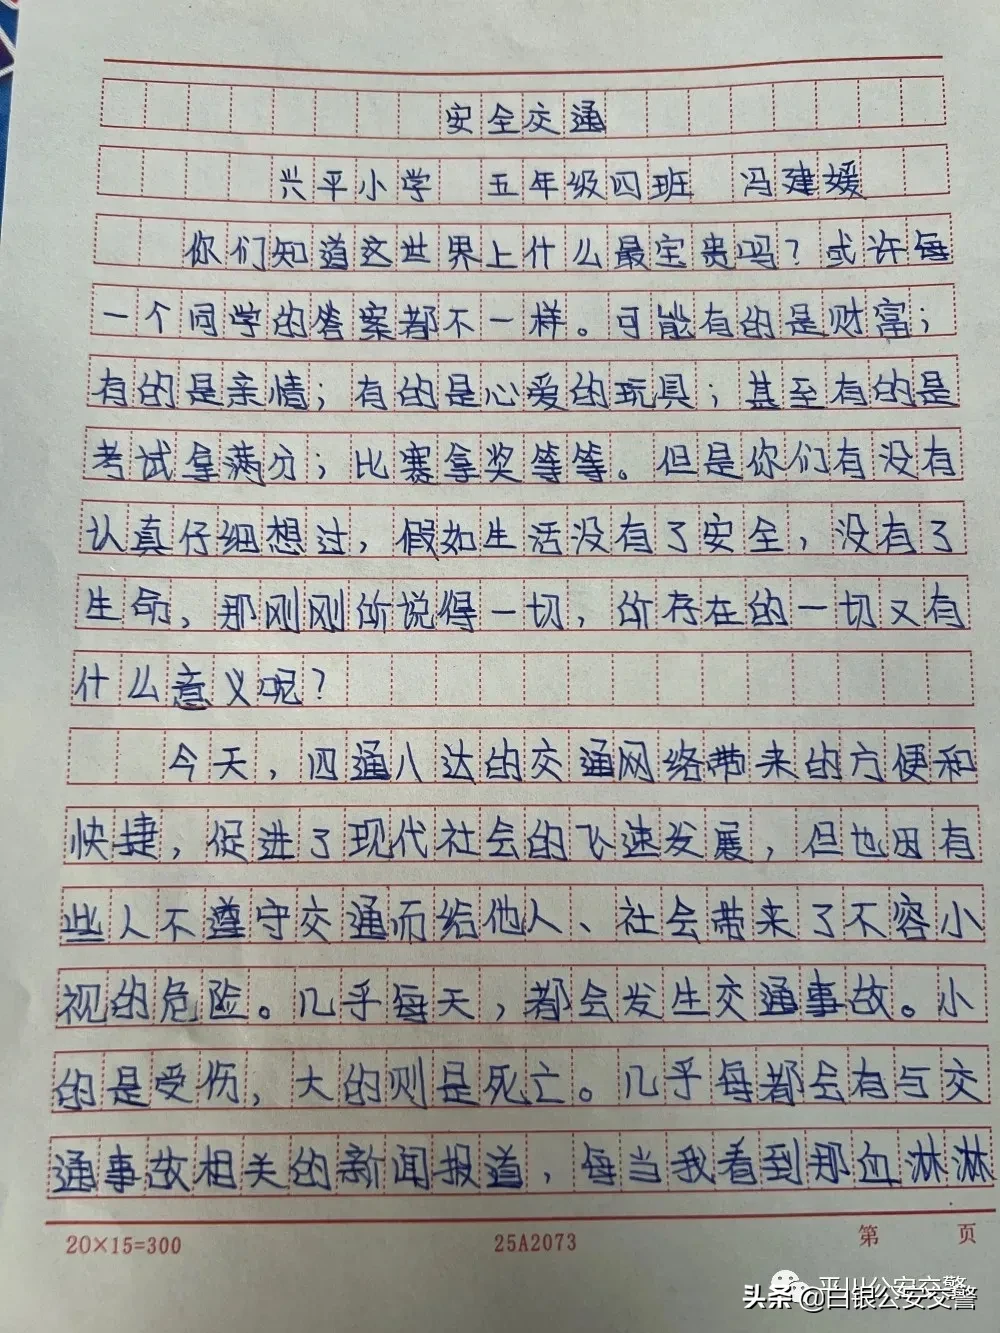 安全交通
兴平小学 五年级四班 冯建媛
你们知道这世界上什么最宝贵吗？或许每
一个同学的答案都不一样。可能有的是财富；
有的是亲情；有的是心爱的玩具；甚至有的是
考试拿满分；比赛拿奖等等。但是你们有没有
认真仔细想过，假如生活没有了安全，没有了
生命，那刚刚所说得一切，所存在的一切又有
什么意义呢？
今天，四通八达的交通网络带来的方便和
快捷，促进了现代社会的飞速发展，但也因有
些人不遵守交通而给他人、社会带来了不容小
视的危险。几乎每天，都会发生交通事故。小
的是受伤，大的则是死亡。几乎每都会有与交
通事故相关的新闻报道，每当我看到那血淋淋
20×15=300 25A2073 第 页
平川公安交警
头条 @白银公安交警